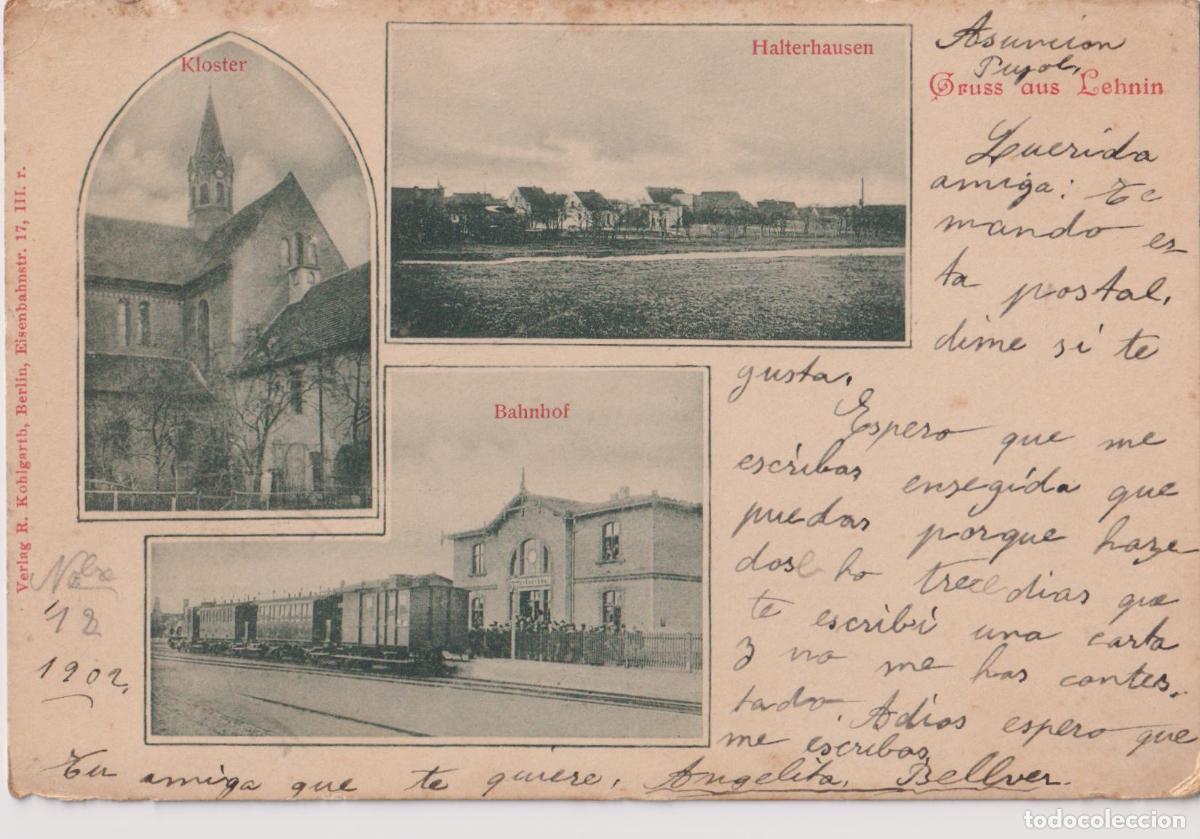 Kloster
Halterhausen
Asuncion
Pujol,
Gruss aus Lehnin
Querida
amiga: Te
mando es-
ta postal,
dime si te
gusta.
Espero que me
escribas ensegida que
puedas porque haze
dos ho tres dias que
te escribi una carta
y no me has contes-
tado. Adios espero que
me escribas
Tu amiga que te quiere, Angelita Bellver.
Bahnhof
Verlag R. Kohlgarth, Berlin, Eisenbahnstr. 17, III. r.
12
1902,
todocoleccion